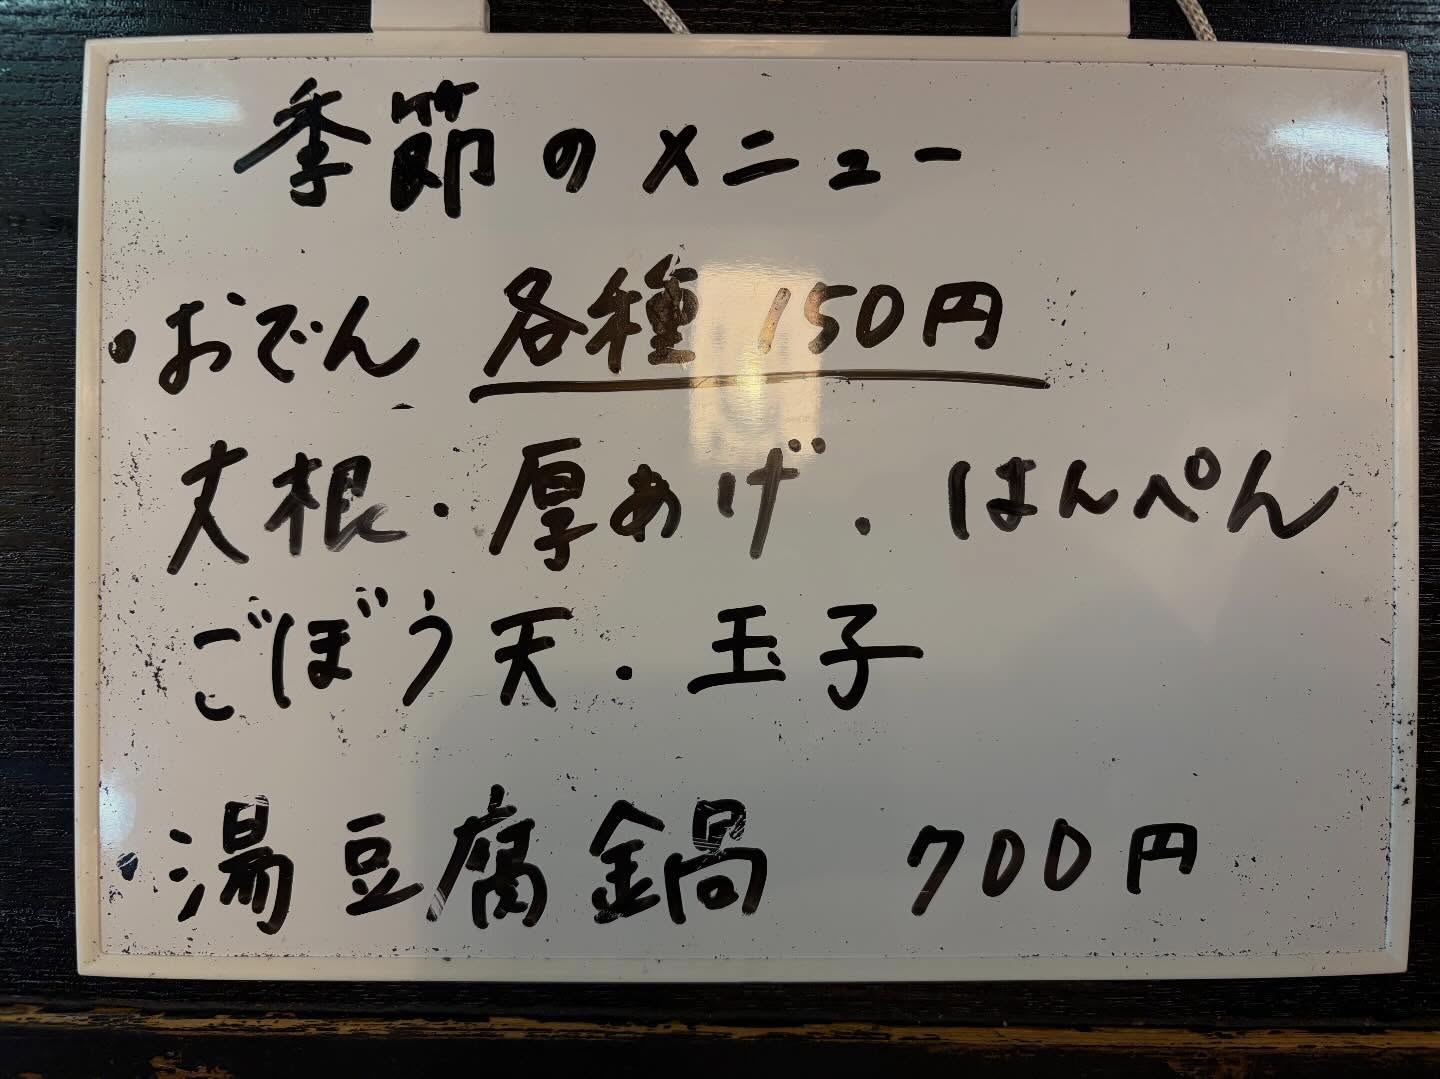 季節のメニュー
・おでん 各種 150円
大根・厚あげ・はんぺん
ごぼう天・玉子
・湯豆腐鍋 700円